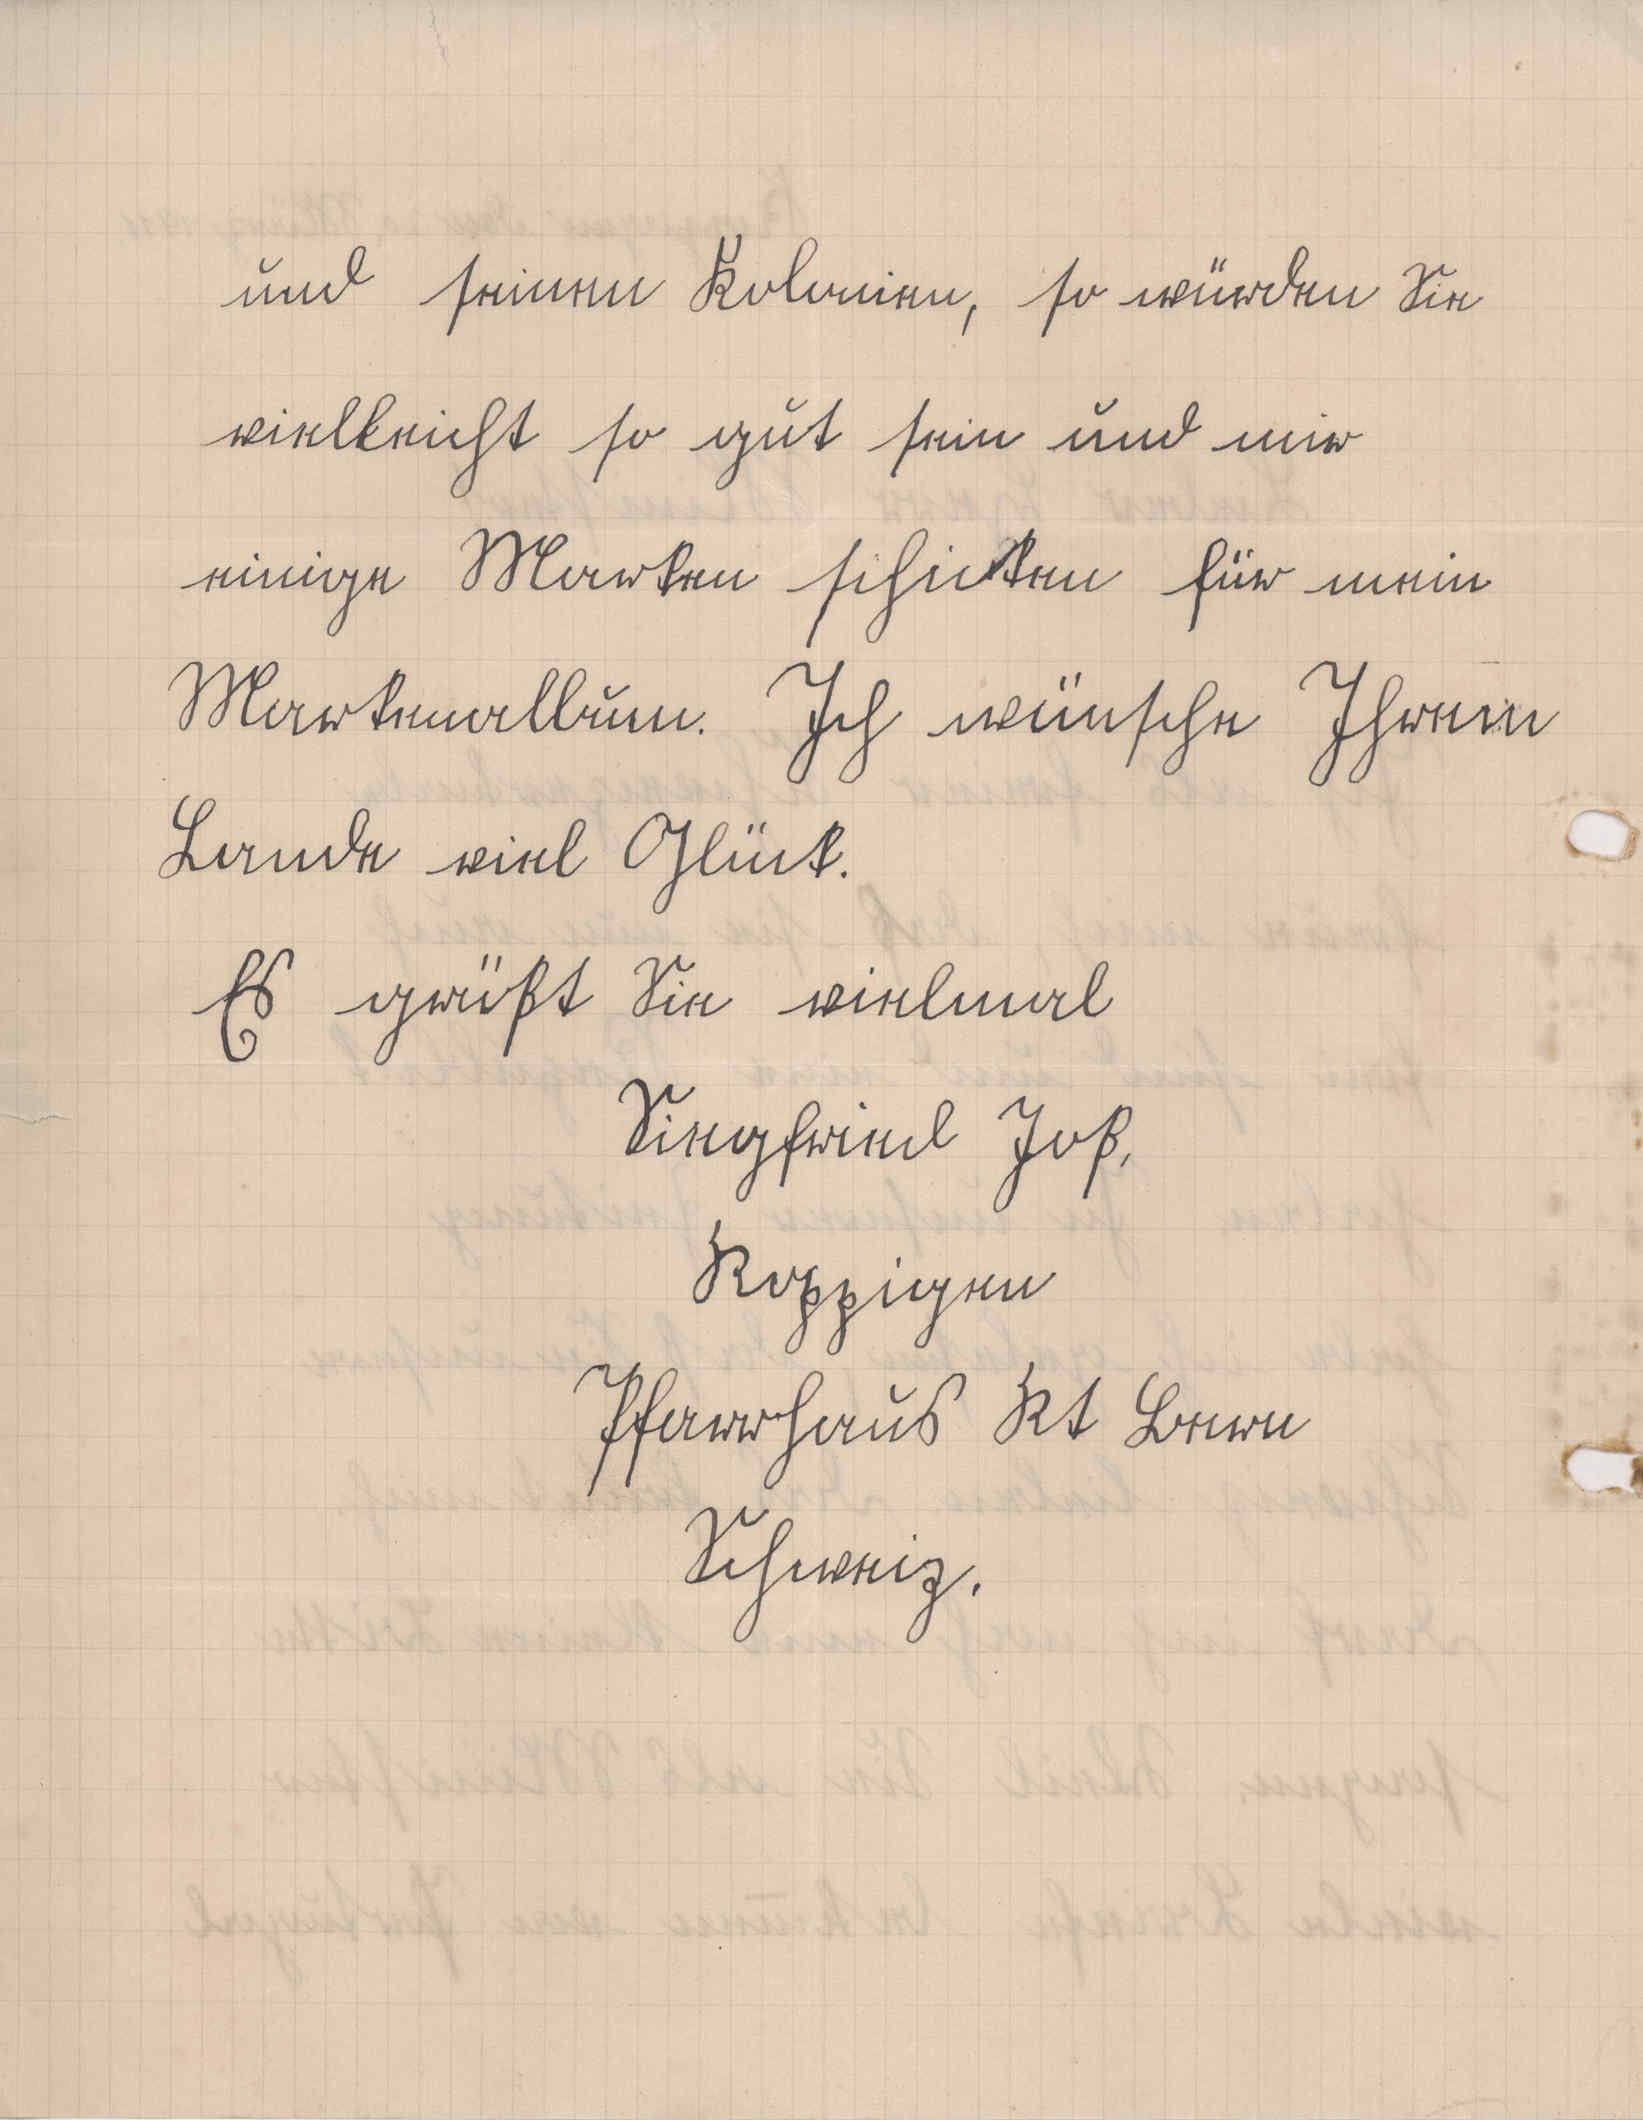 und seinen Kolonien, so würden Sie
vielleicht so gut sein und mir
einige Marken schicken für mein
Markenalbum. Ich wünsche Ihrem
Lande viel Glück.
Es grüßt Sie vielmal
Siegfried Joß,
Koppigen
Pfarrhaus Kt Bern
Schweiz.